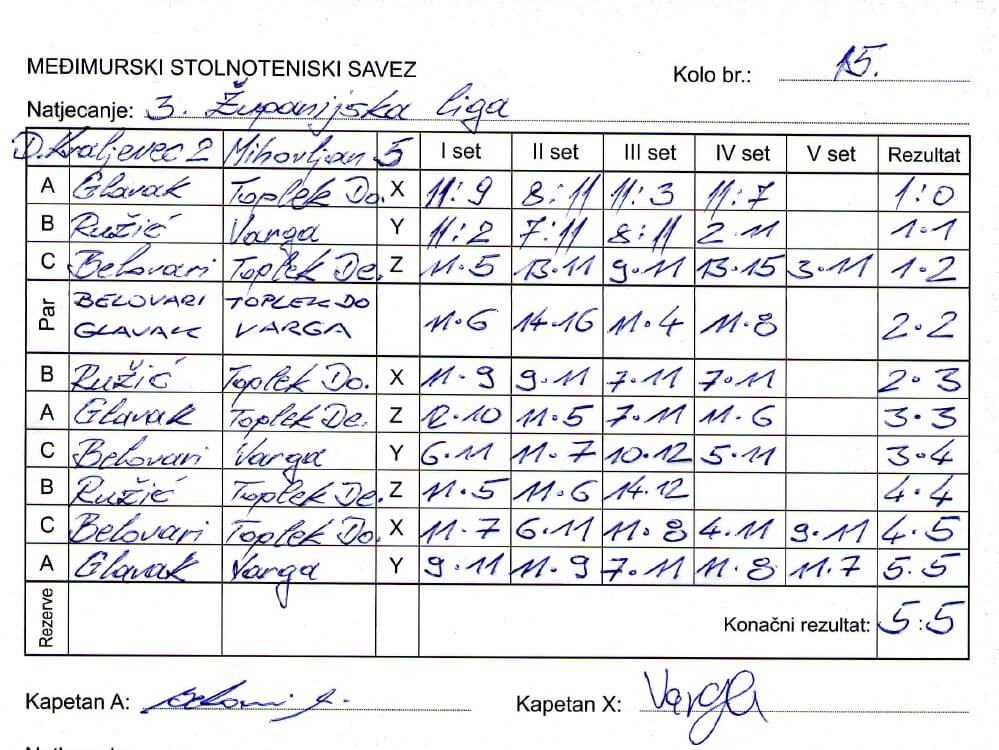 MEĐIMURSKI STOLNOTENISKI SAVEZ
Kolo br.: 15.
Natjecanje: 3. Županijska liga
D. Kraljevec 2 Mihovljan 5 I set II set III set IV set V set Rezultat
A Glavak Toplek Do. X 11:9 8:11 11:3 11:7 1:0
B Ružić Varga Y 11:2 7:11 8:11 2·11 1·1
C Belovari Toplek De. Z 11·5 13·11 9·11 13·15 3·11 1·2
Par BELOVARI GLAVAK TOPLEK DO VARGA 11·6 14·16 11·4 11·8 2·2
B Ružić Toplek Do. X 11·9 9·11 7·11 7·11 2·3
A Glavak Toplek De. Z 12·10 11·5 7·11 11·6 3·3
C Belovari Varga Y 6·11 11·7 10·12 5·11 3·4
B Ružić Toplek De. Z 11·5 11·6 14·12 4·4
C Belovari Toplek Do. X 11·7 6·11 11·8 4·11 9·11 4·5
A Glavak Varga Y 9·11 11·9 7·11 11·8 11·7 5·5
Rezerve Konačni rezultat: 5:5
Kapetan A:
Kapetan X: Varga